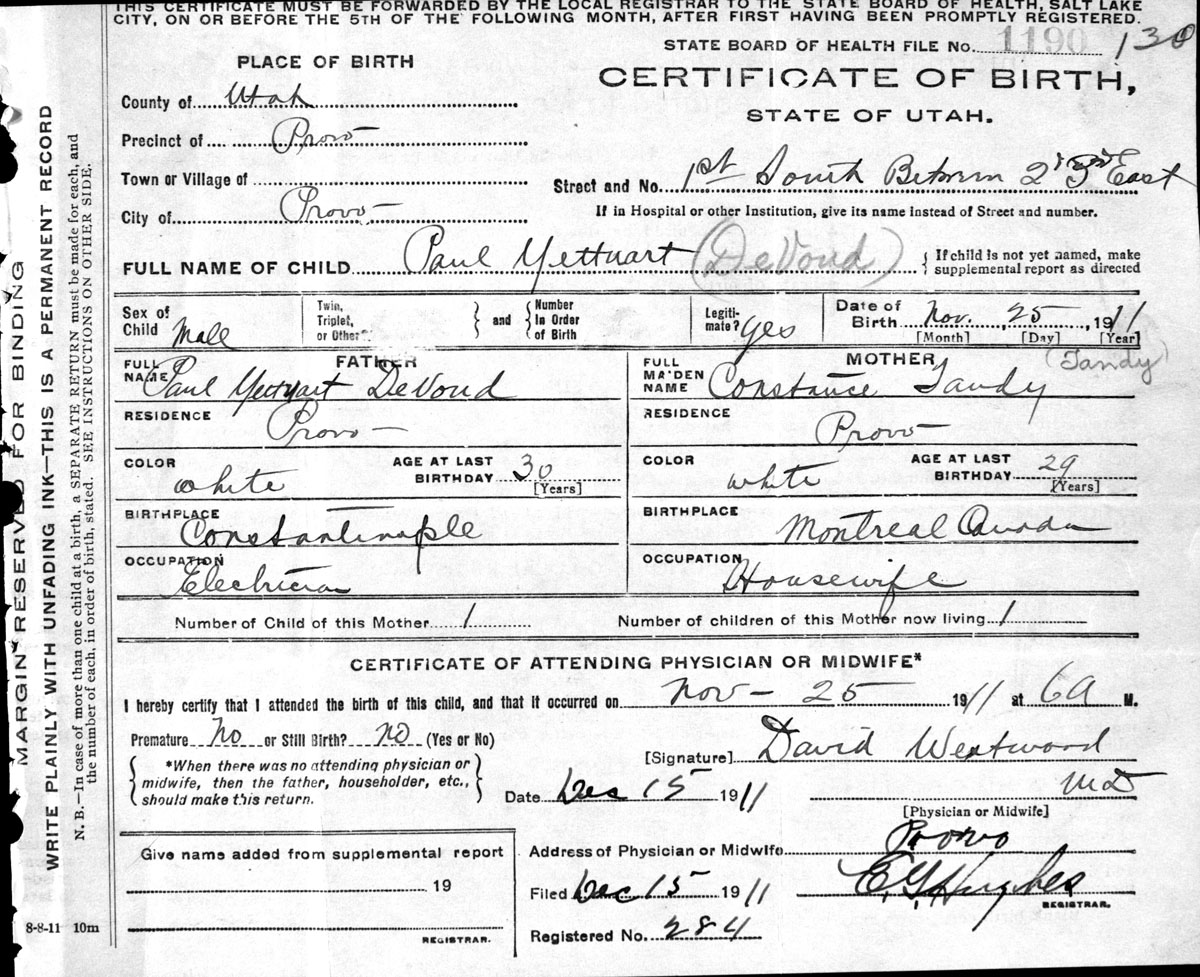 THIS CERTIFICATE MUST BE FORWARDED BY THE LOCAL REGISTRAR TO THE STATE BOARD OF HEALTH, SALT LAKE
CITY, ON OR BEFORE THE 5TH OF THE FOLLOWING MONTH, AFTER FIRST HAVING BEEN PROMPTLY REGISTERED.
STATE BOARD OF HEALTH FILE No. 1190 130
PLACE OF BIRTH
CERTIFICATE OF BIRTH,
STATE OF UTAH.
County of Utah
Precinct of Provo
Town or Village of
Street and No. 1st South Between 2d 3rd East
City of Provo
If in Hospital or other Institution, give its name instead of Street and number.
FULL NAME OF CHILD Paul (DeVoud)
{ If child is not yet named, make
supplemental report as directed
Sex of Child Male
Twin, Triplet, or Other? } and { Number In Order of Birth
Legiti-mate? yes
Date of Birth Nov. 25, 1911
[Month] [Day] [Year]
FATHER
FULL NAME Paul DeVoud
RESIDENCE Provo
COLOR white
AGE AT LAST BIRTHDAY 30
[Years]
BIRTHPLACE Constantinople
OCCUPATION Electrician
MOTHER (Tandy)
FULL MAIDEN NAME Constance Tandy
RESIDENCE Provo
COLOR white
AGE AT LAST BIRTHDAY 29
[Years]
BIRTHPLACE Montreal Canada
OCCUPATION Housewife
Number of Child of this Mother 1
Number of children of this Mother now living 1
CERTIFICATE OF ATTENDING PHYSICIAN OR MIDWIFE*
I hereby certify that I attended the birth of this child, and that it occurred on Nov - 25 1911 at 6 a M.
Premature No or Still Birth? No (Yes or No)
[Signature] David Westwood
*When there was no attending physician or
midwife, then the father, householder, etc.,
should make this return.
Date Dec 15 1911
MD
[Physician or Midwife]
Give name added from supplemental report
19
REGISTRAR.
Address of Physician or Midwife Provo
Filed Dec 15 1911 E. G. Hughes
REGISTRAR.
Registered No. 284
8-8-11 10m
MARGIN RESERVED FOR BINDING
WRITE PLAINLY WITH UNFADING INK—THIS IS A PERMANENT RECORD
N. B.—In case of more than one child at a birth, a SEPARATE RETURN must be made for each, and
the number of each, in order of birth, stated. SEE INSTRUCTIONS ON OTHER SIDE.